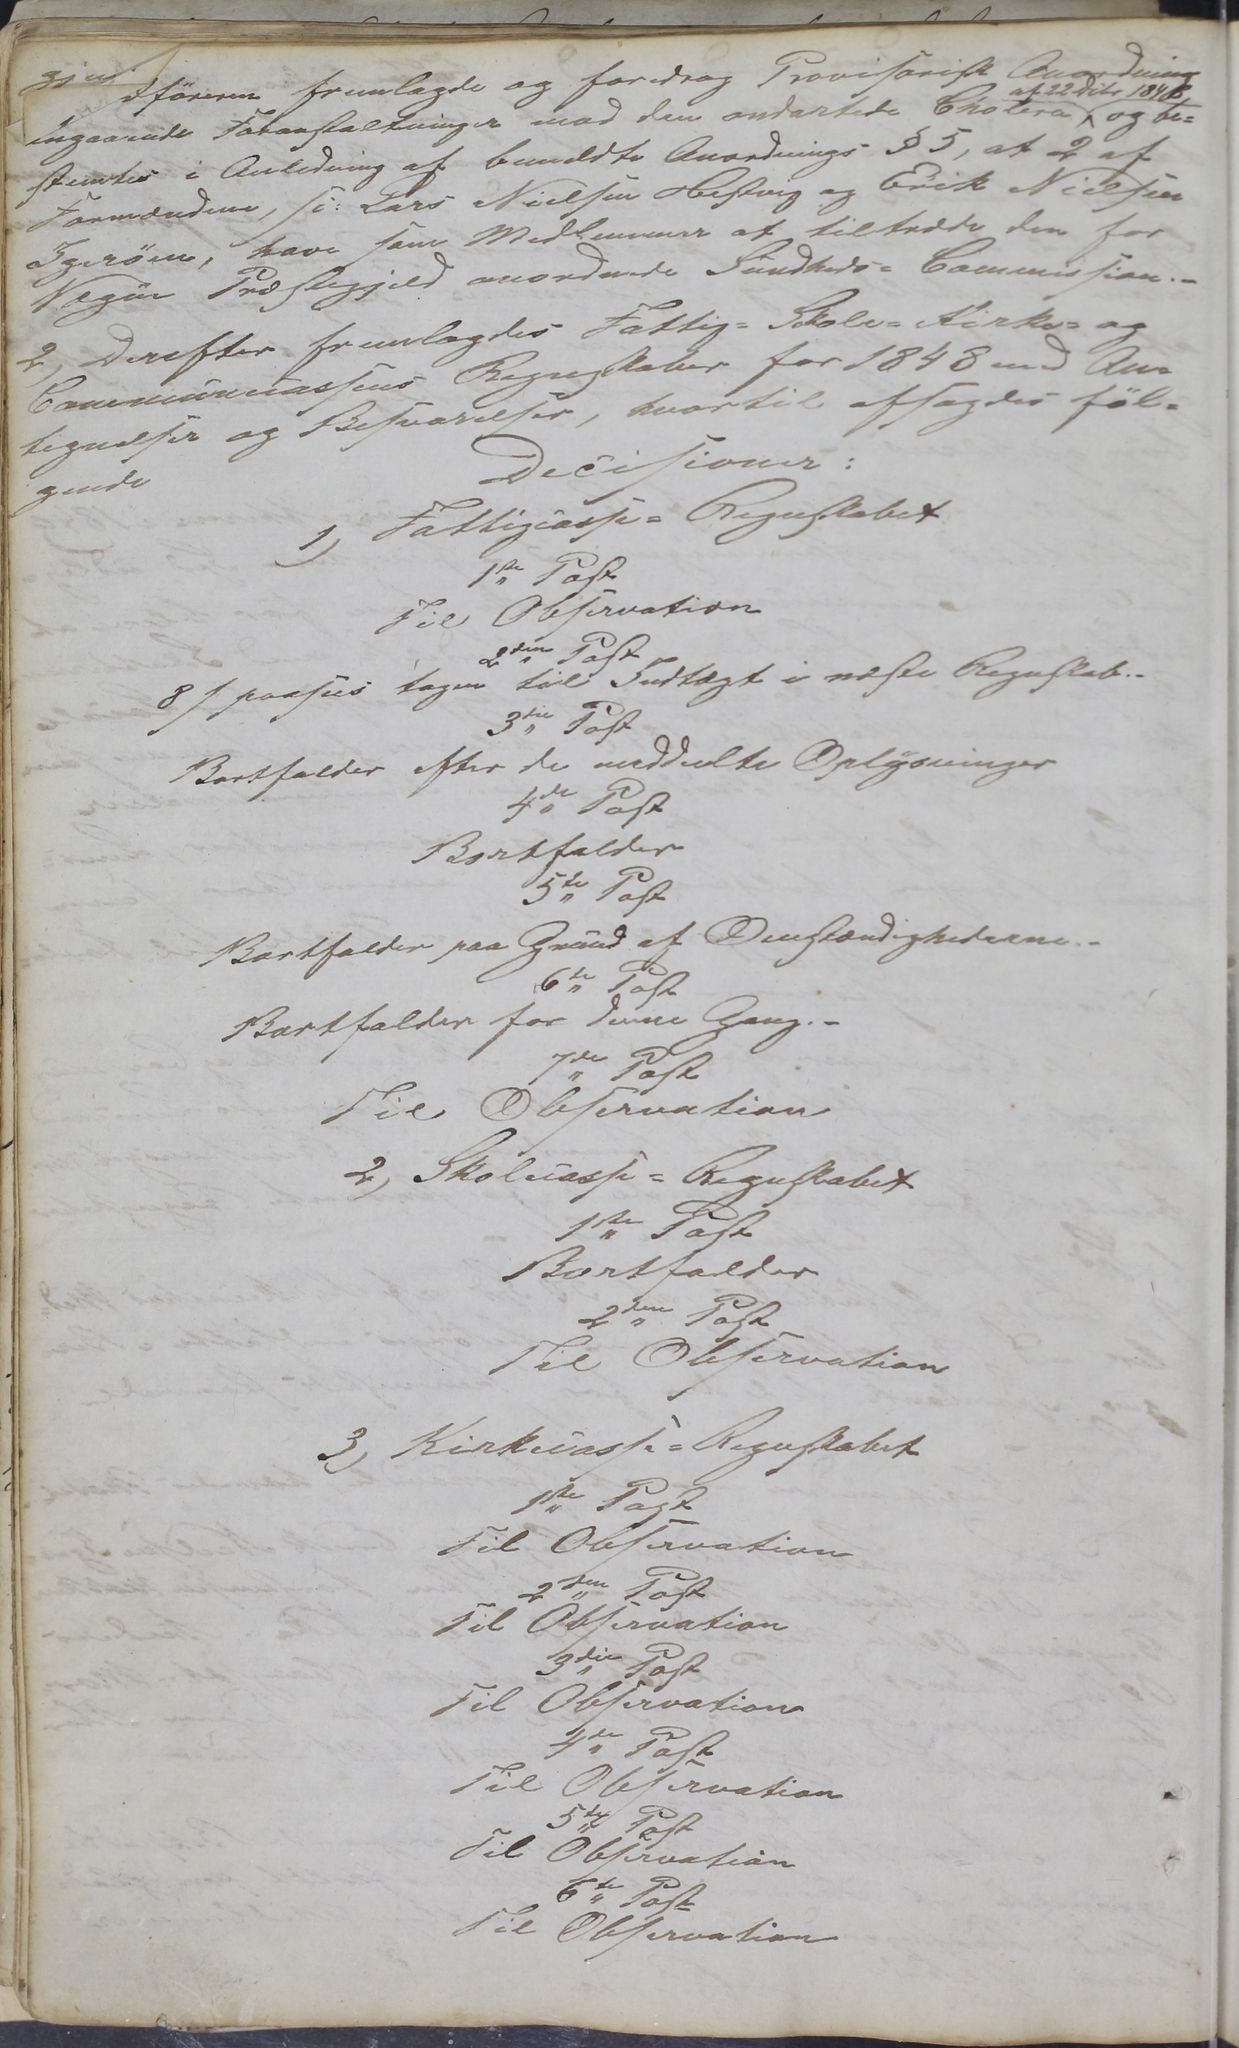 Ordføreren fremlagde og foredrog Provisorisk Anordning
af 22 Dcbr 1848
angaaende Foranstaltninger mod den ondartede Cholera, og be=
stemtes i Anledning af bemeldte Anordnings § 5, at 2 af
Formændene, s: Lars Nielsen Hestvig og Erik Nielsen
Igerøen, have som Medlemmer at tiltræde den for
Vegøe Præstegjeld anordnede Sundheds= Commission.-
2, Derefter fremlagdes Fattig= Skole= Kirke= og
Communecassens Regnskaber for 1848 med An=
tegnelser og Besvarelser, hvortil afsagdes føl=
gende
Decisioner:
1, Fattigcasse= Regnskabet
1ste Post
Til Observation
2den Post
8 s paasees tagen til Indtægt i næste Regnskab.-
3die Post
Bortfalder efter de meddeelte Oplysninger
4de Post
Bortfalder
5te Post
Bortfalder paa Grund af Omstændighederne.-
6te Post
Bortfalder for denne Gang.-
7de Post
Til Observation
2, Skolecasse= Regnskabet
1ste Post
Bortfalder
2den Post
Til Observation
3, Kirkecasse= Regnskabet
1ste Post
Til Observation
2den Post
Til Observation
3die Post
Til Observation
4de Post
Til Observation
5te Post
Til Observation
6te Post
Til Observation